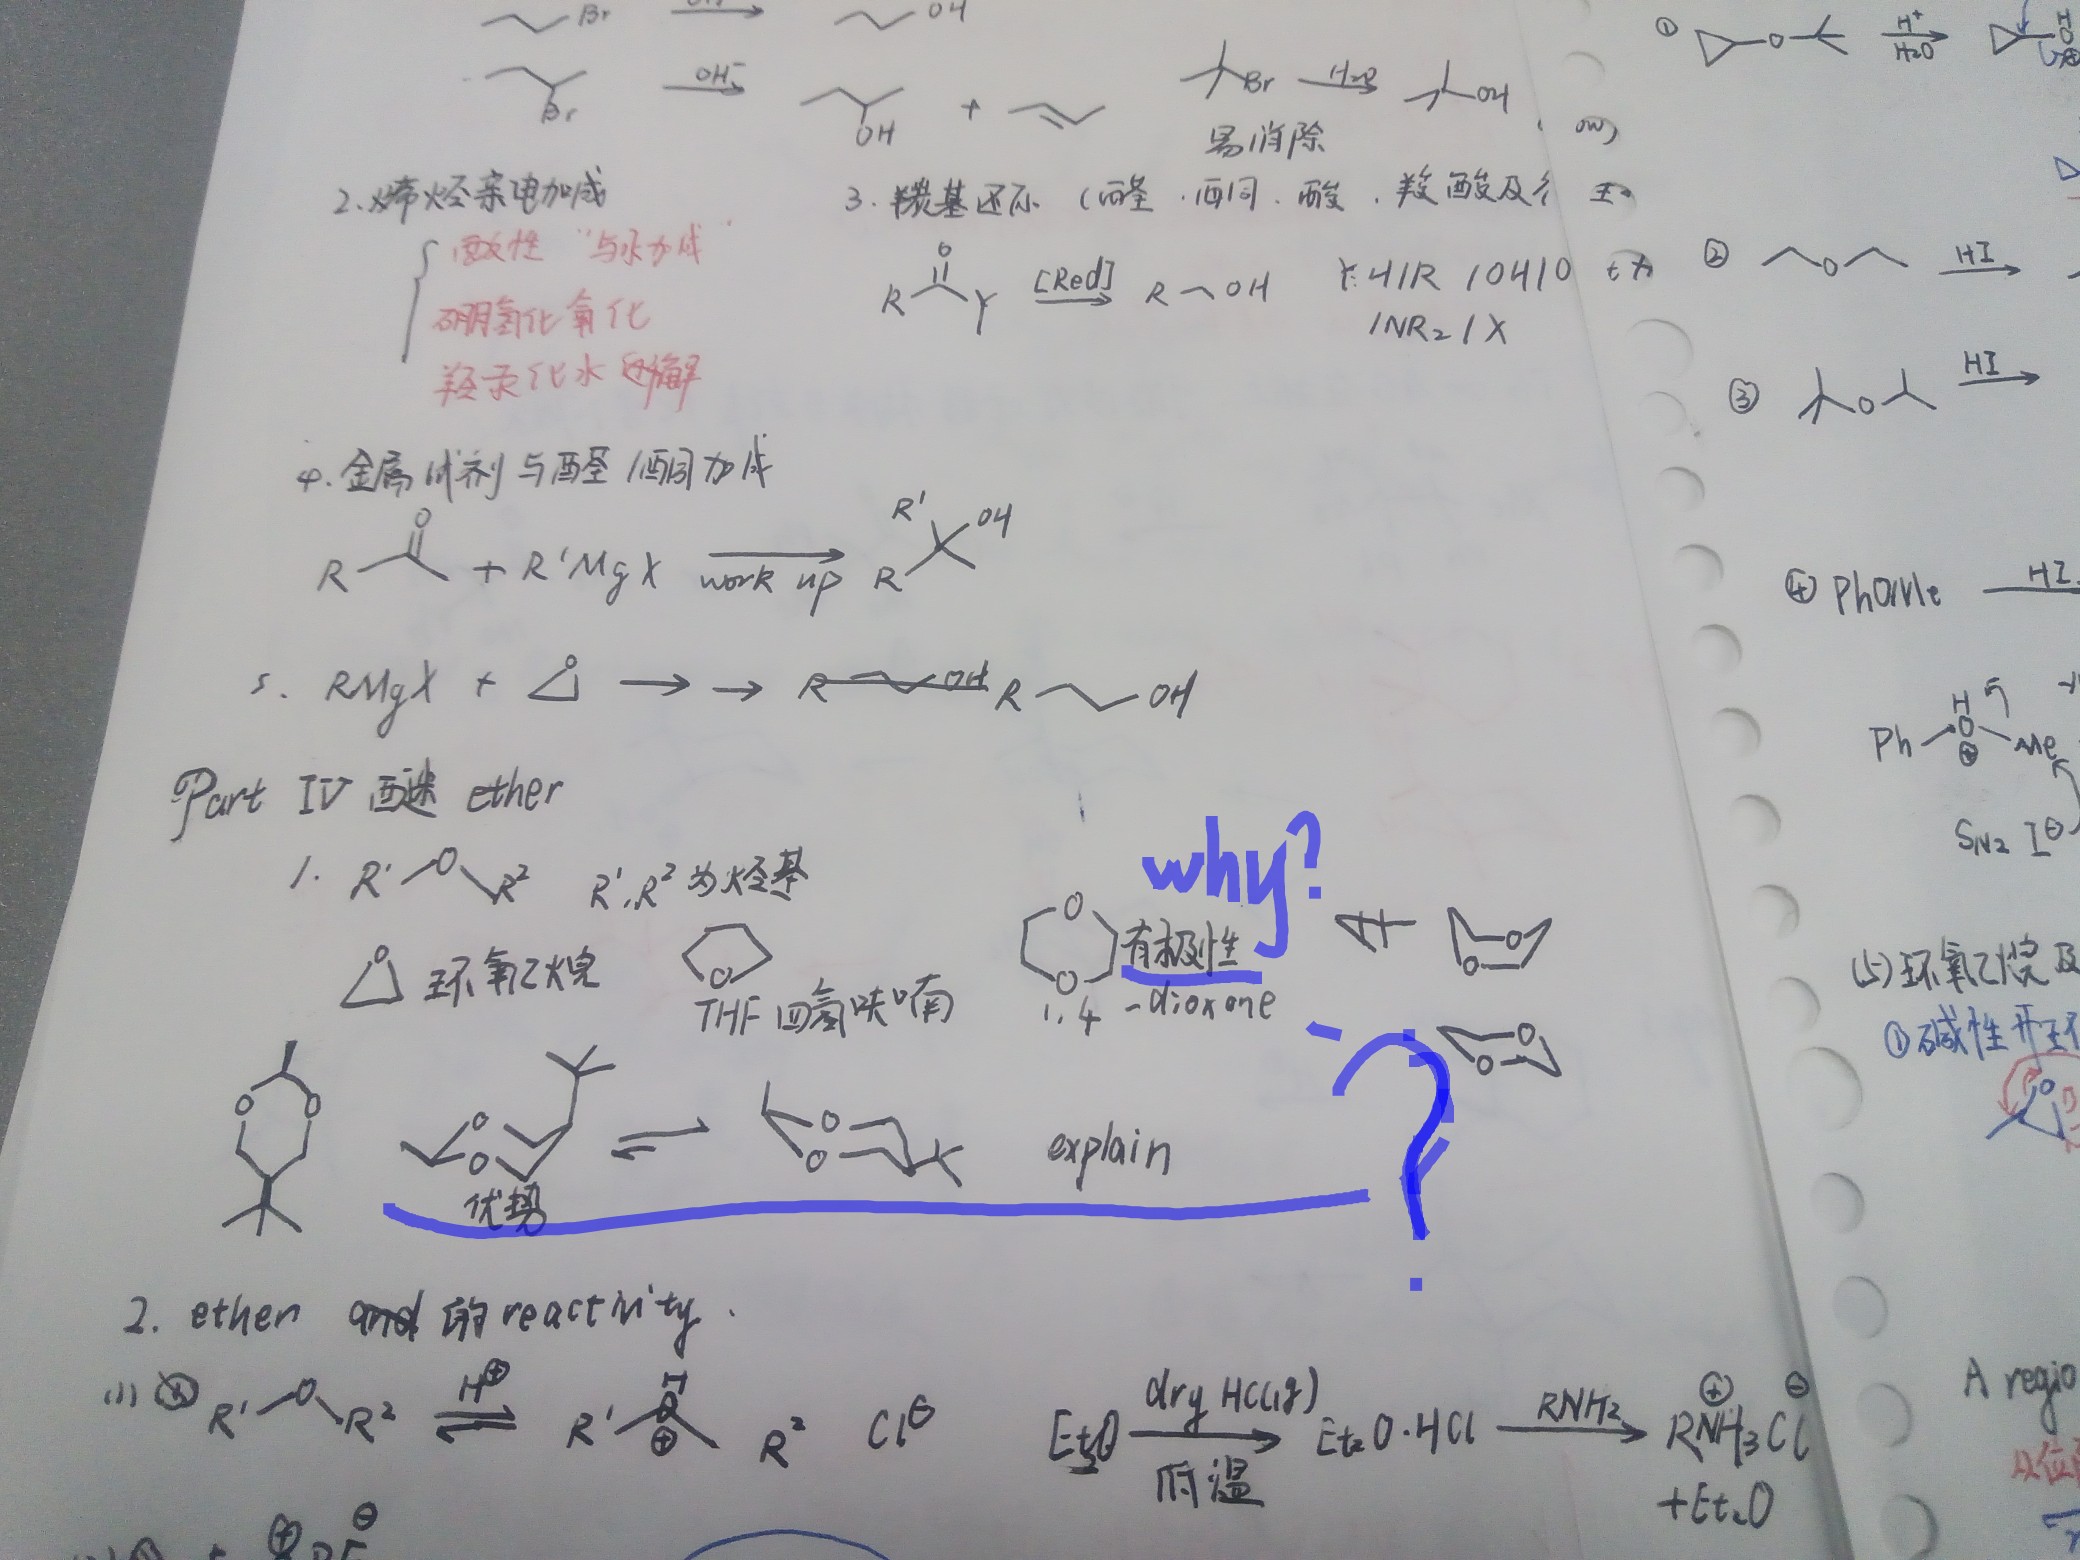 Br OH⁻ OH
Br OH⁻ OH + Br H₂O OH
易消除
2.烯烃亲电加成
酸性 "与水加成"
硼氢化氧化
羟汞化水解
3.羰基还原 (醛.酮.酸.羧酸及
R O Y [Red] R OH Y: H/R /OH/O
/NR₂/X
4.金属试剂与醛/酮加成
R O + R'MgX work up R' OH R
5. RMgX + O → → R OH R OH
Part IV 醚 ether
1. R' O R² R',R²为烃基
why?
O 环氧乙烷 O THF 四氢呋喃 O O 有极性 O O
1,4-dioxane
O O
O O O O 优势 ⇌ O O explain ?
2. ether and 的 reactivity.
(1) R' O R² H⊕ ⇌ R' H O ⊕ R² Cl⊖ Et₂O dry HCl(g) 低温 Et₂O·HCl RNH₂ RNH₃⊕Cl⊖
+Et₂O
① O H⁺ H₂O H O
② O HI
③ O HI
④ PhOMe HI
Ph H O ⊕ Me
SN2 I⊖
(5)环氧乙烷及
①碱性开环
O
A regio